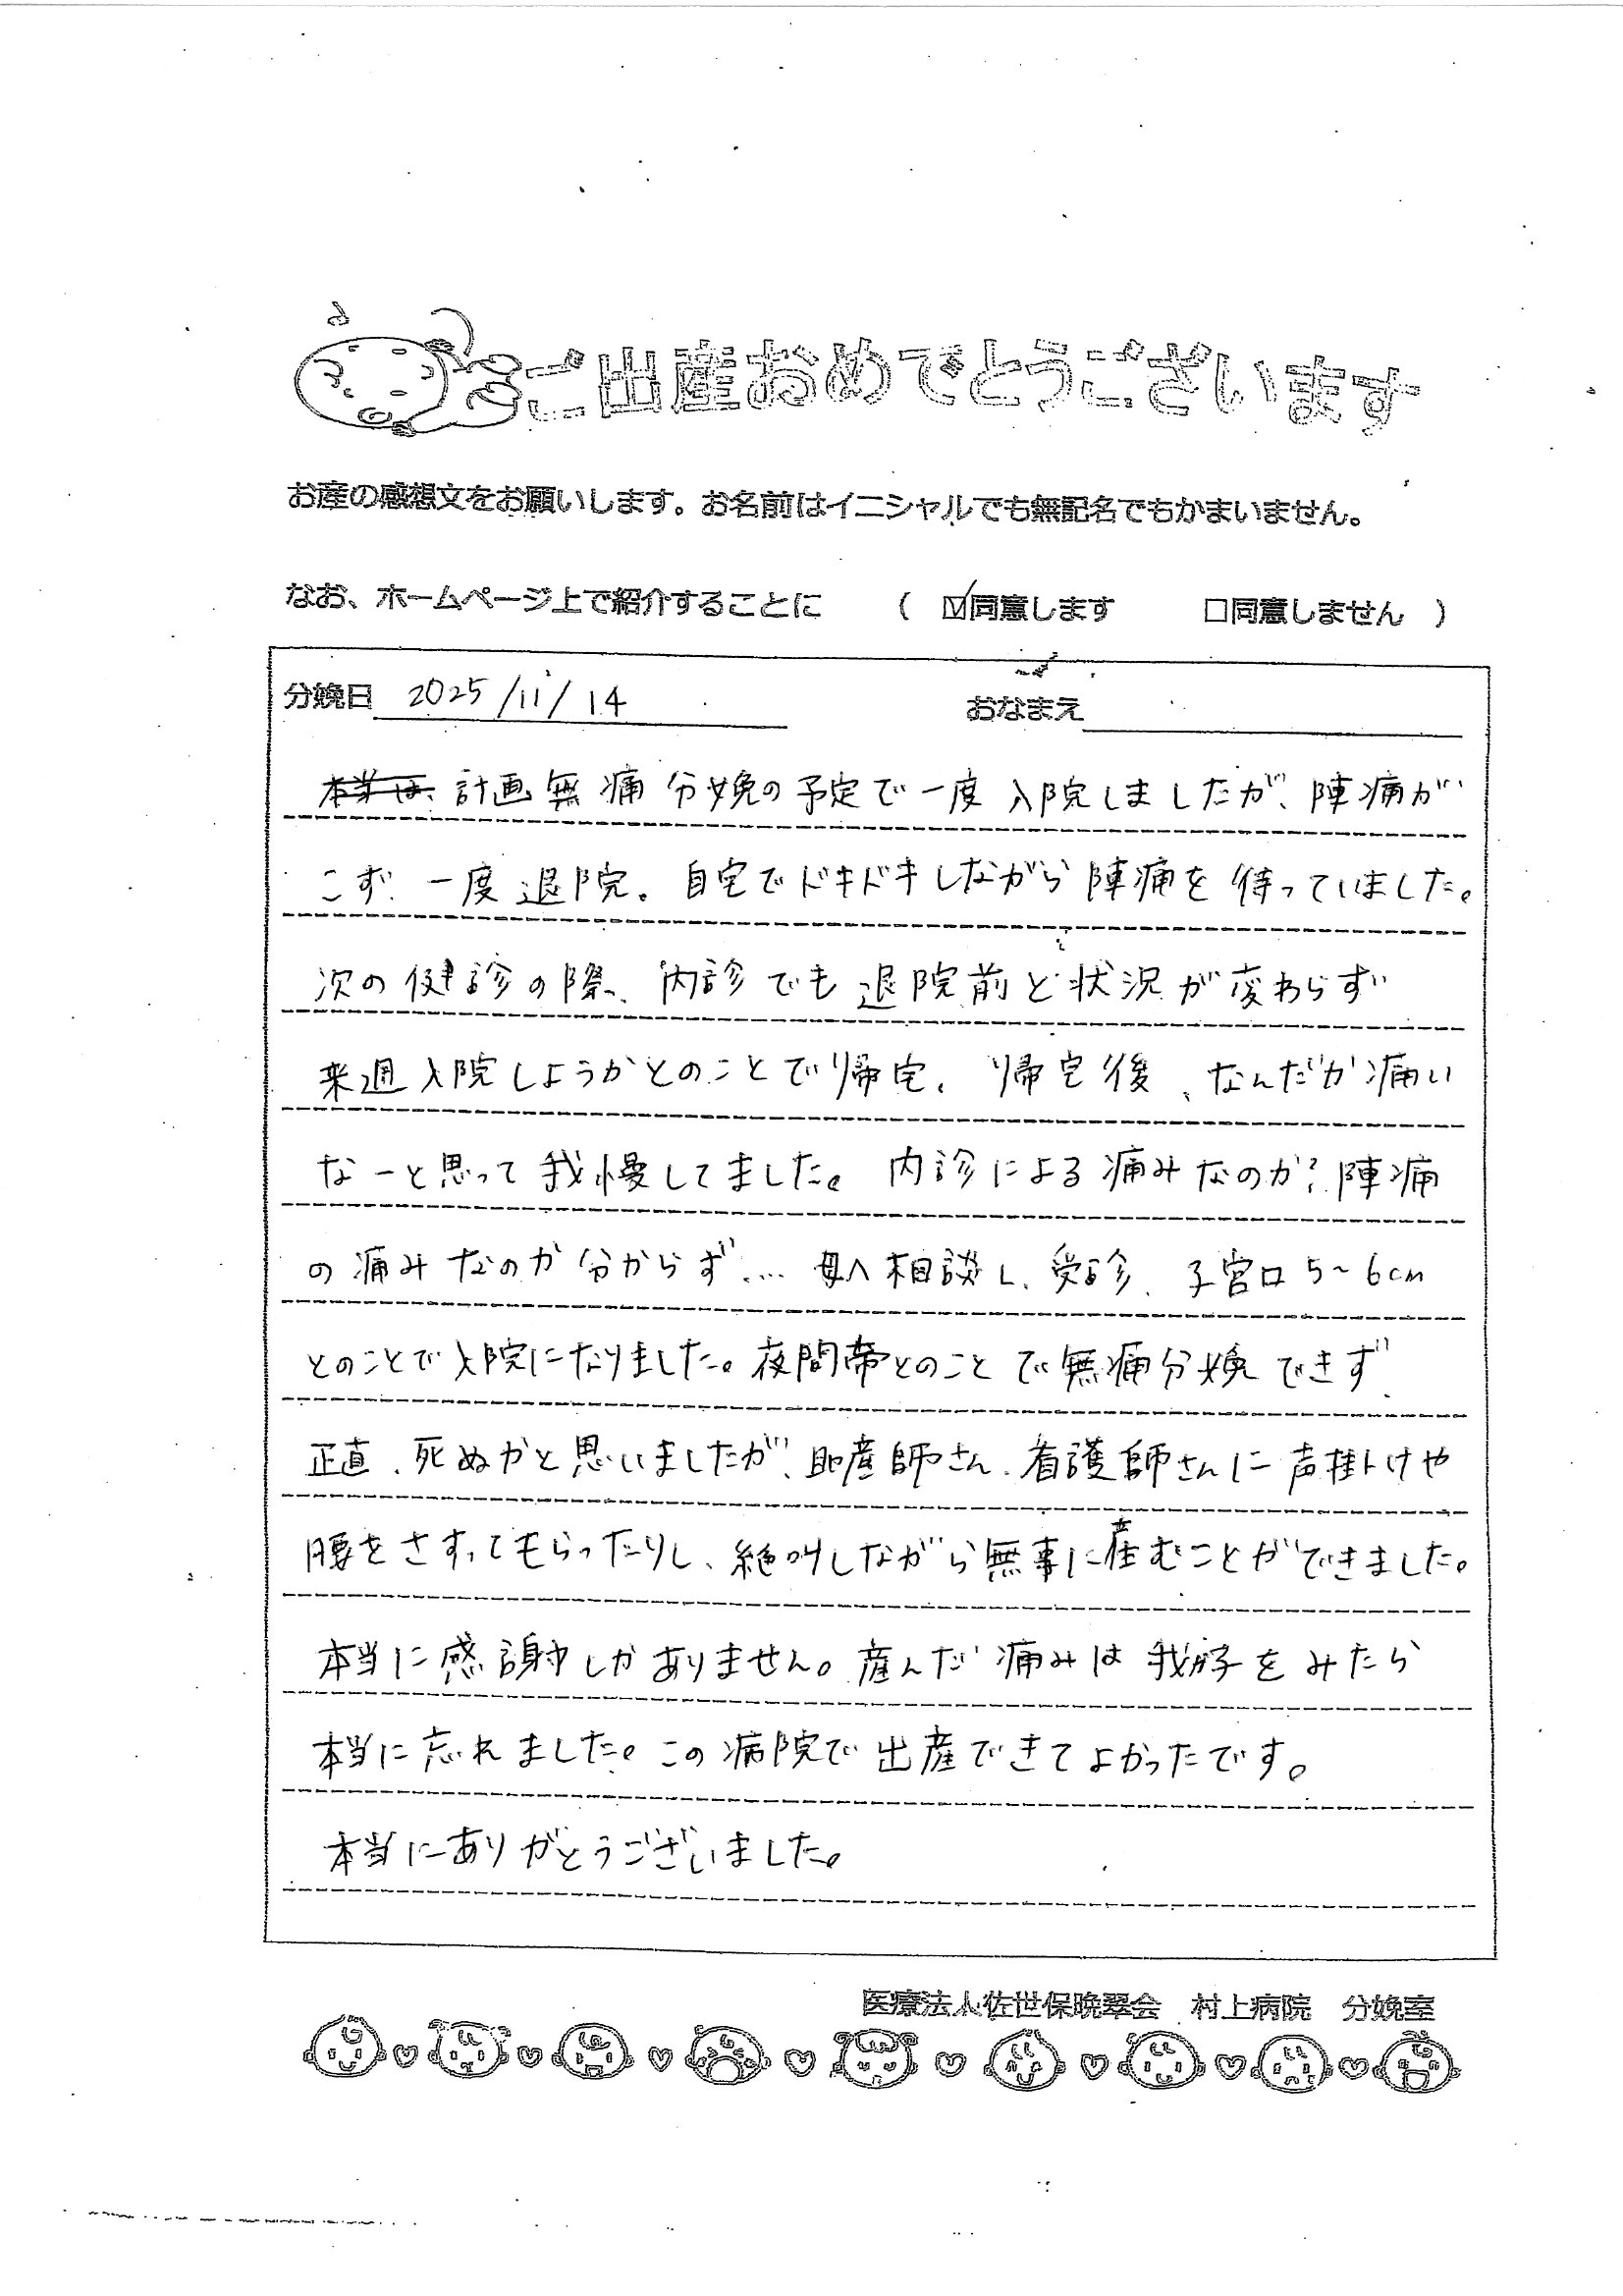 ご出産おめでとうございます
お産の感想文をお願いします。お名前はイニシャルでも無記名でもかまいません。
なお、ホームページ上で紹介することに （ ☑同意します □同意しません ）
分娩日 2025/11/14 おなまえ
計画無痛分娩の予定で一度入院しましたが、陣痛が
こず、一度退院。自宅でドキドキしながら陣痛を待っていました。
次の健診の際、内診でも退院前と状況が変わらず
来週入院しようかとのことで帰宅、帰宅後、なんだか痛い
なーと思って我慢してました。内診による痛みなのか？陣痛
の痛みなのか分からず… 母へ相談し、受診、子宮口5~6cm
とのことで入院になりました。夜間帯とのことで無痛分娩できず、
正直、死ぬかと思いましたが、助産師さん、看護師さんに声掛けや
腰をさすってもらったりし、絶叫しながら無事に産むことができました。
本当に感謝しかありません。産んだ痛みは我子をみたら
本当に忘れました。この病院で出産できてよかったです。
本当にありがとうございました。
医療法人佐世保晩翠会 村上病院 分娩室